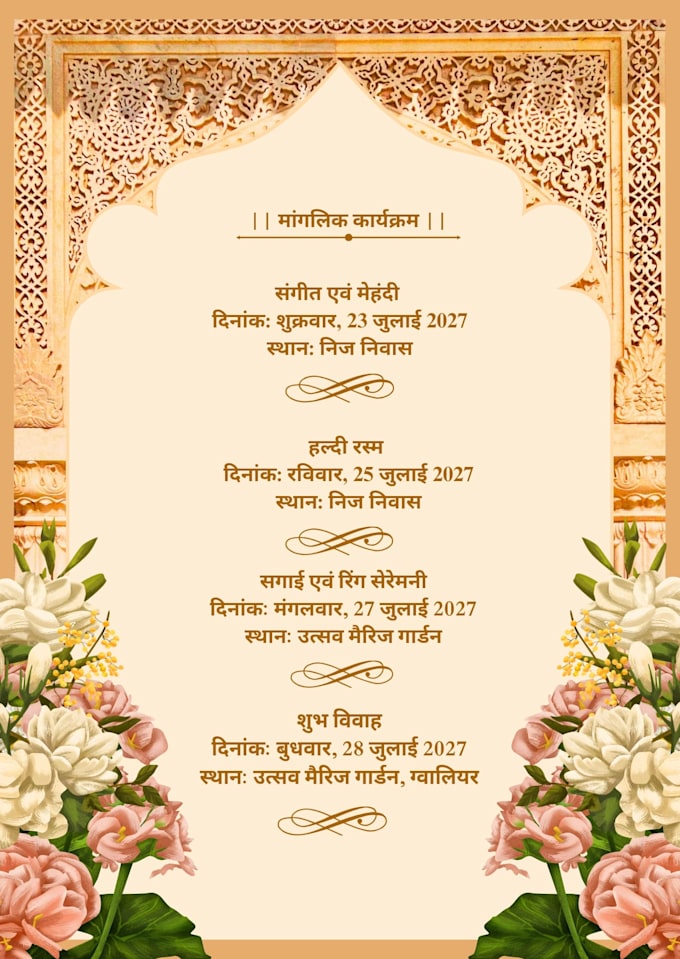 || मांगलिक कार्यक्रम ||
संगीत एवं मेहंदी
दिनांक: शुक्रवार, 23 जुलाई 2027
स्थान: निज निवास
हल्दी रस्म
दिनांक: रविवार, 25 जुलाई 2027
स्थान: निज निवास
सगाई एवं रिंग सेरेमनी
दिनांक: मंगलवार, 27 जुलाई 2027
स्थान: उत्सव मैरिज गार्डन
शुभ विवाह
दिनांक: बुधवार, 28 जुलाई 2027
स्थान: उत्सव मैरिज गार्डन, ग्वालियर